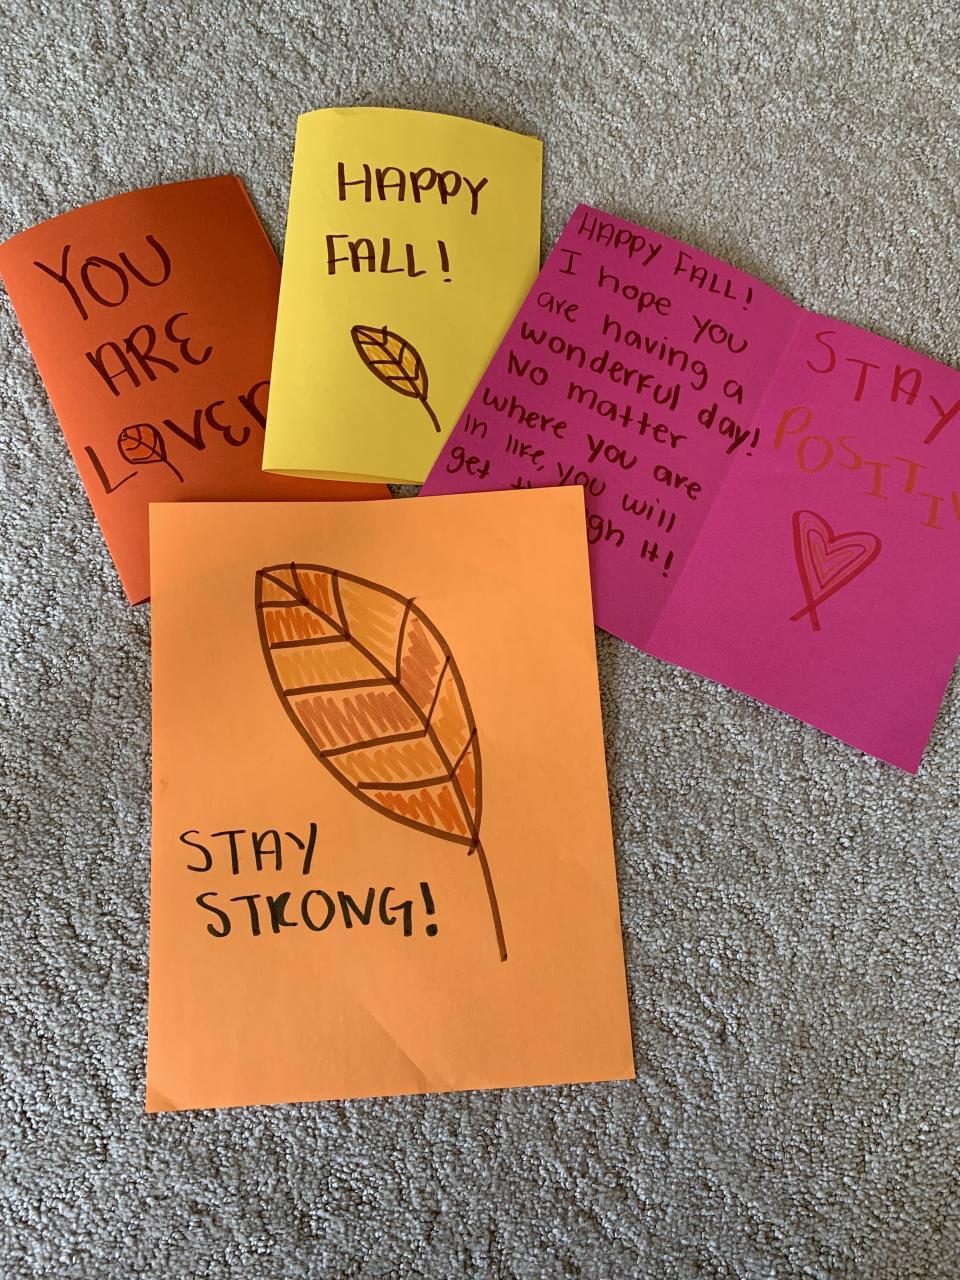 YOU
ARE
LOVED
HAPPY
FALL!
HAPPY FALL!
I hope you
are having a
wonderful day!
No matter
where you are
in life, you will
get through it!
STAY
POSITIV
STAY
STRONG!